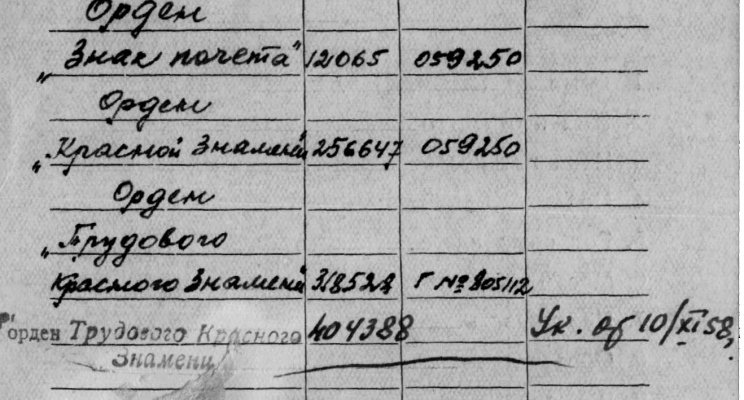 Орден
„Знак почета“ 12065 059250
Орден
„Красной Знамени 256647 059250
Орден
„Трудового
Красного Знамени 318528 Г №805112
орден Трудового Красного 404388 Ук. об 10/XI 58,
Знамени